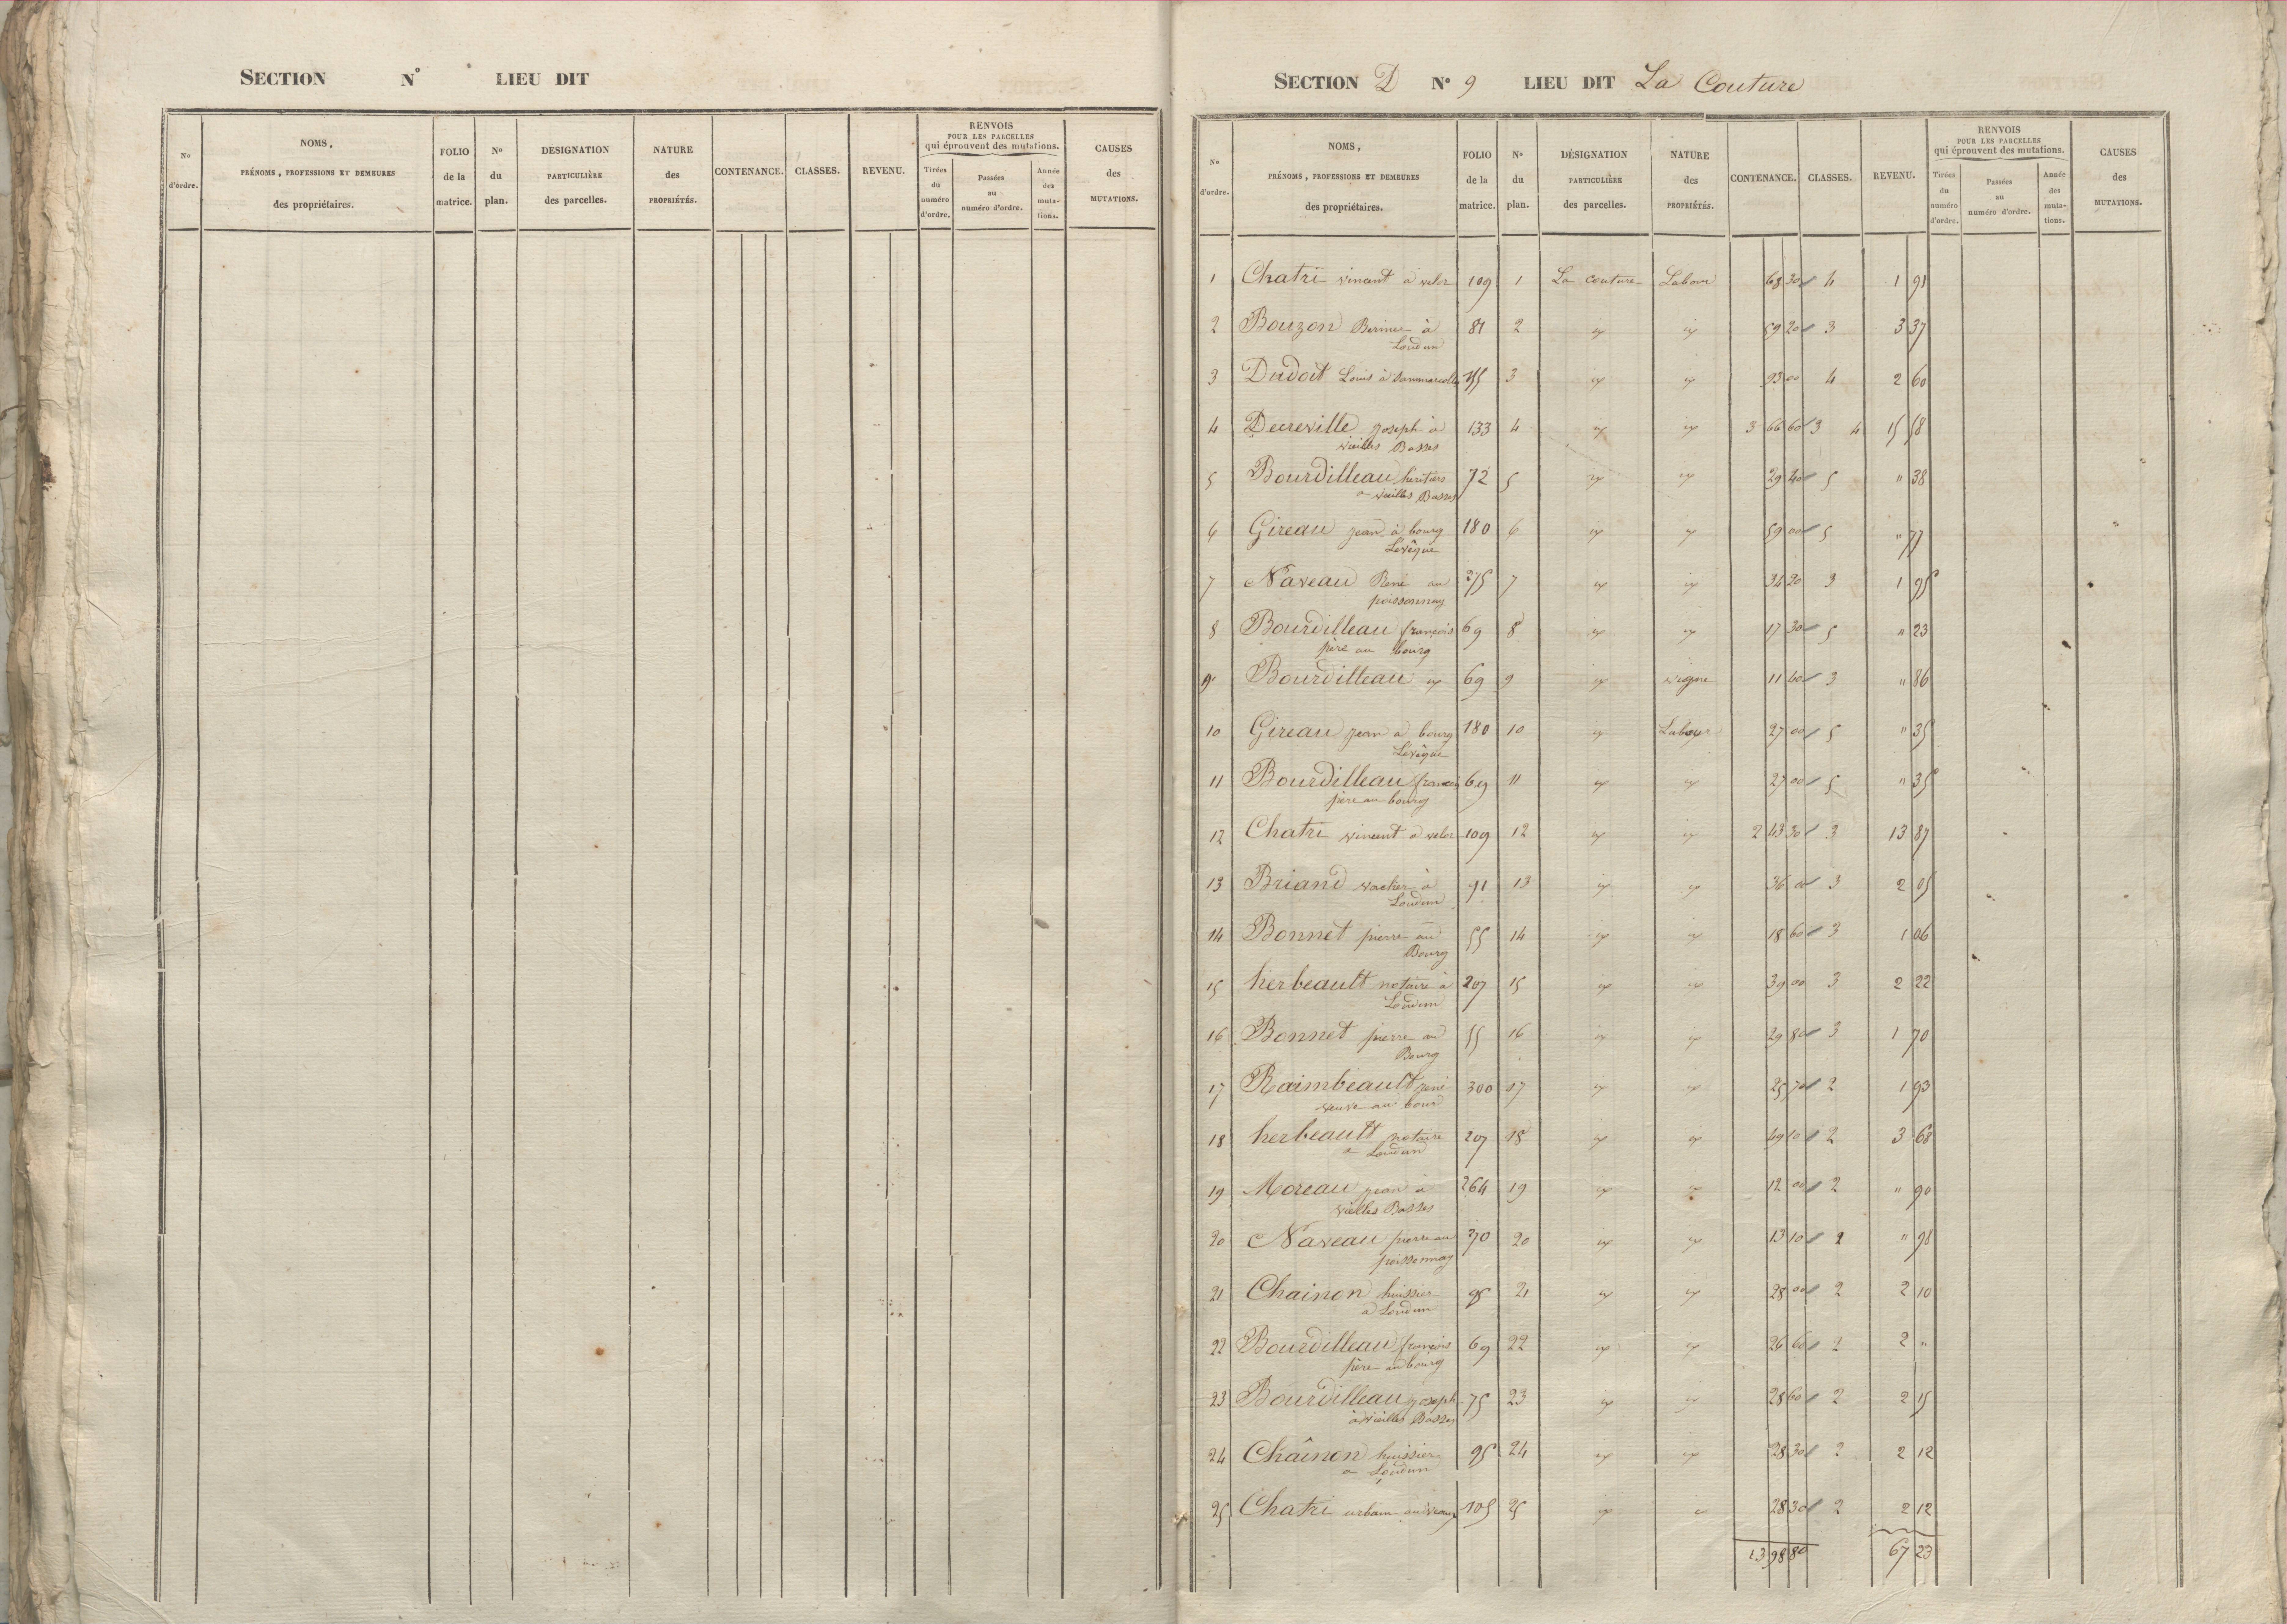 SECTION N° LIEU DIT
N° d'ordre. NOMS, PRÉNOMS, PROFESSIONS ET DEMEURES des propriétaires. FOLIO de la matrice. N° du plan. DESIGNATION PARTICULIÈRE des parcelles. NATURE des PROPRIÉTÉS. CONTENANCE. CLASSES. REVENU. RENVOIS POUR LES PARCELLES qui éprouvent des mutations. Tirées du numéro d'ordre. Passées au numéro d'ordre. Année des mutations. CAUSES des MUTATIONS.
SECTION D N° 9 LIEU DIT La Couture
N° d'ordre. NOMS, PRÉNOMS, PROFESSIONS ET DEMEURES des propriétaires. FOLIO de la matrice. N° du plan. DÉSIGNATION PARTICULIÈRE des parcelles. NATURE des PROPRIÉTÉS. CONTENANCE. CLASSES. REVENU. RENVOIS POUR LES PARCELLES qui éprouvent des mutations. Tirées du numéro d'ordre. Passées au numéro d'ordre. Année des mutations. CAUSES des MUTATIONS.
1 Chatri vincent à velor 109 1 La couture Labour 68 30 4 1 91
2 Bouzon à 81 2 59 20 3 3 37
Loudun
3 Dudoit Louis à 3 93 00 4 2 60
4 Decreville joseph à 133 4 3 66 60 3 4 15 58
vieilles Basses
5 Bourdilleau héritiers 72 5 29 40 5 " 38
a vieilles Basses
6 Gireau jean à bourg 180 6 59 00 5 " 77
Levêque
7 Naveau René au 275 7 34 20 3 1 95
poissonnay
8 Bourdilleau françois 69 8 17 30 5 " 23
père au bourg
9 Bourdilleau 69 9 vigne 11 40 3 " 86
10 Gireau jean à bourg 180 10 Labour 27 00 5 " 35
Levêque
11 Bourdilleau françois 69 11 27 00 5 " 35
père au bourg
12 Chatri vincent à velor 109 12 2 43 30 3 13 87
13 Briand vacher à 91 13 36 00 3 2 05
Loudun
14 Bonnet pierre au 55 14 18 60 3 1 06
Bourg
15 herbeault notaire à 207 15 39 00 3 2 22
Loudun
16 Bonnet pierre au 55 16 29 80 3 1 70
Bourg
17 Raimbeault rené 300 17 25 70 2 1 93
veuve au bour
18 herbeault notaire 207 18 49 10 2 3 68
a Loudun
19 Moreau jean a 264 19 12 00 2 " 90
vieilles Basses
20 Naveau pierre au 270 20 13 10 2 " 98
poissonnay
21 Chainon huissier 95 21 28 00 2 2 10
a Loudun
22 Bourdilleau françois 69 22 26 60 2 2 "
père au bourg
23 Bourdilleau joseph 75 23 28 60 2 2 15
à vieilles Basses
24 Chaînon huissier 95 24 28 30 2 2 12
a Loudun
25 Chatri urbain 105 25 28 30 2 2 12
13 98 80 67 23